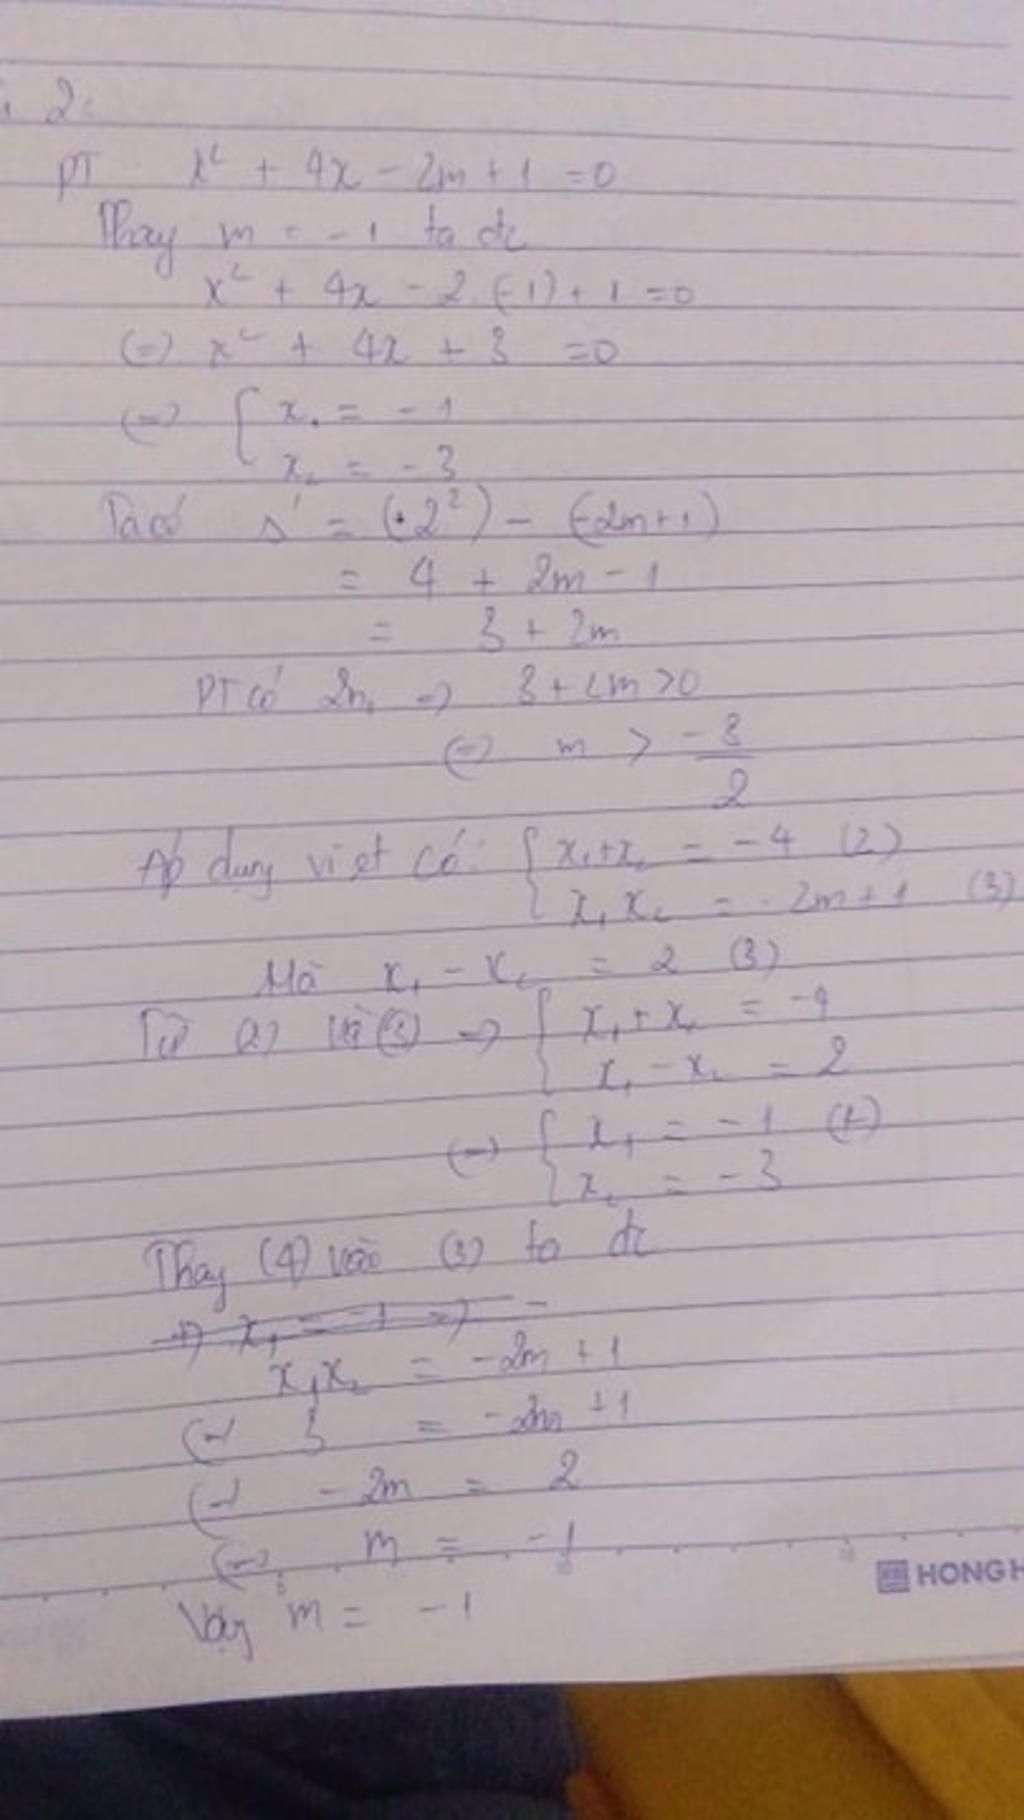 2:
PT x² + 4x - 2m + 1 = 0
Thay m = -1 ta đc
x² + 4x - 2.(-1) + 1 = 0
(=) x² + 4x + 3 = 0
(=) { x₁ = -1
x₂ = -3
Ta có Δ' = (+2²) - (-2m+1)
= 4 + 2m - 1
= 3 + 2m
PT có 2n₀ => 3 + 2m > 0
(=) m > -3/2
Áp dụng viet có: { x₁+x₂ = -4 (2)
x₁x₂ = -2m+1 (3)
Mà x₁ - x₂ = 2 (3)
Từ (2) và (3) => { x₁+x₂ = -4
x₁ - x₂ = 2
(=) { x₁ = -1 (4)
x₂ = -3
Thay (4) vào (3) ta đc
=> x₁ = -1 =) -
x₁x₂ = -2m + 1
(=) 3 = -2m + 1
(=) -2m = 2
(=) m = -1
HONG H
Vậy m = -1